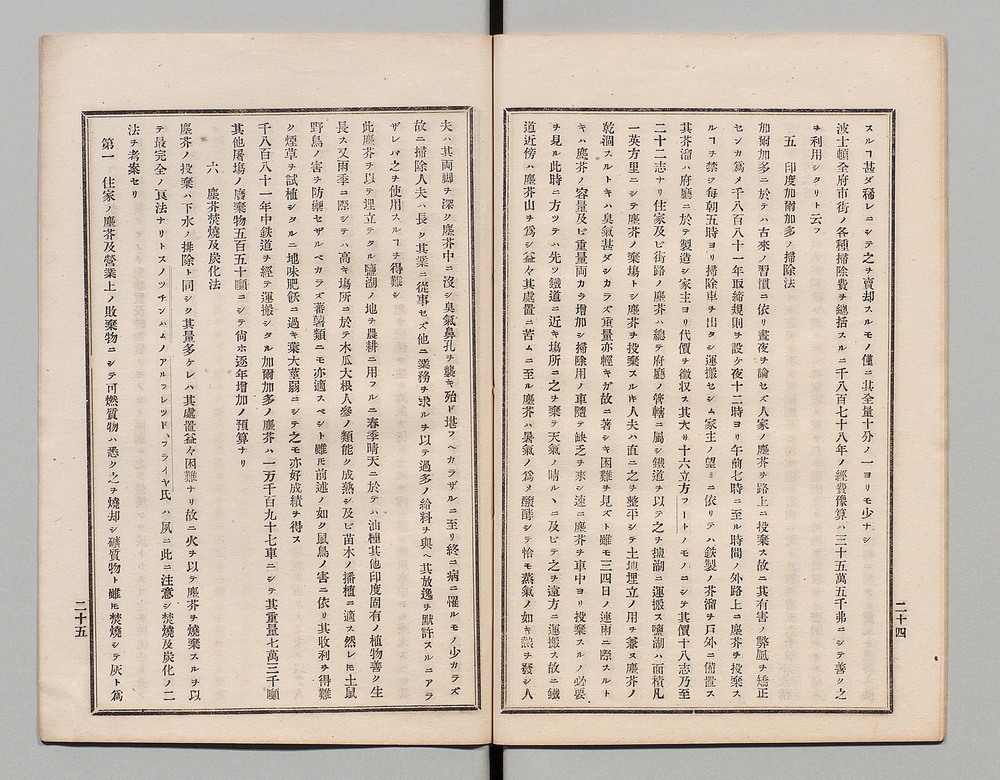 スルヿ甚ダ稀レニシテ之ヲ賣却スルモノ僅ニ其全量十分ノ一ヨリモ少ナシ
波士頓全府市街ノ各種掃除費ヲ總括スルニ千八百七十八年ノ經費豫算ハ三十五萬五千弗ニシテ善ク之
ヲ利用シタリト云フ
五 印度加爾加多ノ掃除法
加爾加多ニ於テハ古來ノ習慣ニ依リ晝夜ヲ論セズ人家ノ塵芥ヲ路上ニ投棄ス故ニ其有害ノ弊風ヲ矯正
センカ爲メ千八百八十一年取締規則ヲ設ケ夜十二時ヨリ午前七時ニ至ル時間ノ外路上ニ塵芥ヲ投棄ス
ルヿヲ禁ジ每朝五時ヨリ掃除車ヲ出タシ運搬セシム家主ノ望ミニ依リテハ鉄製ノ芥溜ヲ戶外ニ備置ス
其芥溜ハ府廳ニ於テ製造シ家主ヨリ代價ヲ徵収ス其大サ十六立方フートノモノニシテ其價十八志乃至
二十二志ナリ住家及ビ街路ノ塵芥ハ總テ府廳ノ管轄ニ屬シ鐵道ヲ以テ之ヲ擔湖ニ運搬ス鹽湖ハ面積凡
一英方里ニシテ塵芥ノ棄場トシ塵芥ヲ投棄スル𪜈人夫ハ直ニ之ヲ整平シテ土地埋立ノ用ヲ兼ヌ塵芥ノ
乾涸スルトキハ臭氣甚ダシカラズ重量亦輕キガ故ニ著シキ困難ヲ見ズト雖モ三四日ノ連雨ニ際スルト
キハ塵芥ノ容量及ビ重量両カラ增加シ掃除用ノ車隨テ缺乏ヲ來シ速ニ塵芥ヲ車中ヨリ投棄スルノ必要
ヲ見ル此時ニ方ツテハ先ツ鐵道ニ近キ場所ニ之ヲ棄テ天氣ノ晴ルヽニ及ビテ之ヲ遠方ニ運搬ス故ニ鐵
道近傍ハ塵芥山ヲ爲シ益々其處置ニ苦ムニ至ル塵芥ハ暑氣ノ爲メ醱酵シテ恰モ蒸氣ノ如キ熱ヲ發シ人
二十四
夫ハ其両脚ヲ深ク塵芥中ニ沒シ臭氣鼻孔ヲ襲キ殆ド堪フヘカラザルニ至リ終ニ病ニ罹ルモノ少カラズ
故ニ掃除人夫ハ長ク其業ニ從事セズ他ニ業務ヲ求ルヲ以テ過多ノ給料ヲ與ヘ其放逸ヲ默許スルニアラ
ザレバ之ヲ使用スルヿヲ得難シ
此塵芥ヲ以テ埋立テタル鹽湖ノ地ヲ農耕ニ用フルニ春季晴天ニ於テハ油種其他印度固有ノ植物善ク生
長ス又雨季ニ際シテハ高キ場所ニ於テ木瓜大根人參ノ類能ク成熟シ及ビ苗木ノ播植ニ適ス然レ𪜈土鼠
野鳥ノ害ヲ防禦セザルベカラズ蕃薯類ニモ亦適スベシト雖𪜈前述ノ如ク鼠鳥ノ害ニ依リ其收利ヲ得難
ク煙草ヲ試植シタルニ地味肥飫ニ過キ葉大莖弱ニシテ之モ亦好成績ヲ得ス
千八百八十一年中鉄道ヲ經テ運搬シタル加爾加多ノ塵芥ハ一万千百九十七車ニシテ其重量七萬三千噸
其他屠塲ノ廢棄物五百五十噸ニシテ尙ホ逐年增加ノ預算ナリ
六 塵芥焚燒及炭化法
塵芥ノ投棄ハ下水ノ排除ト同シク其量多ケレハ其處置益々困難ナリ故ニ火ヲ以テ塵芥ヲ燒棄スルヲ以
テ最完全ノ眞法ナリトスノッチンハムノアルフレッド、フライヤ氏ハ夙ニ此ニ注意シ焚燒及炭化ノ二
法ヲ考案セリ
第一 住家ノ塵芥及營業上ノ敗棄物ニシテ可燃質物ハ悉ク之ヲ燒却シ礦質物ト雖𪜈焚燒シテ灰ト爲
二十五